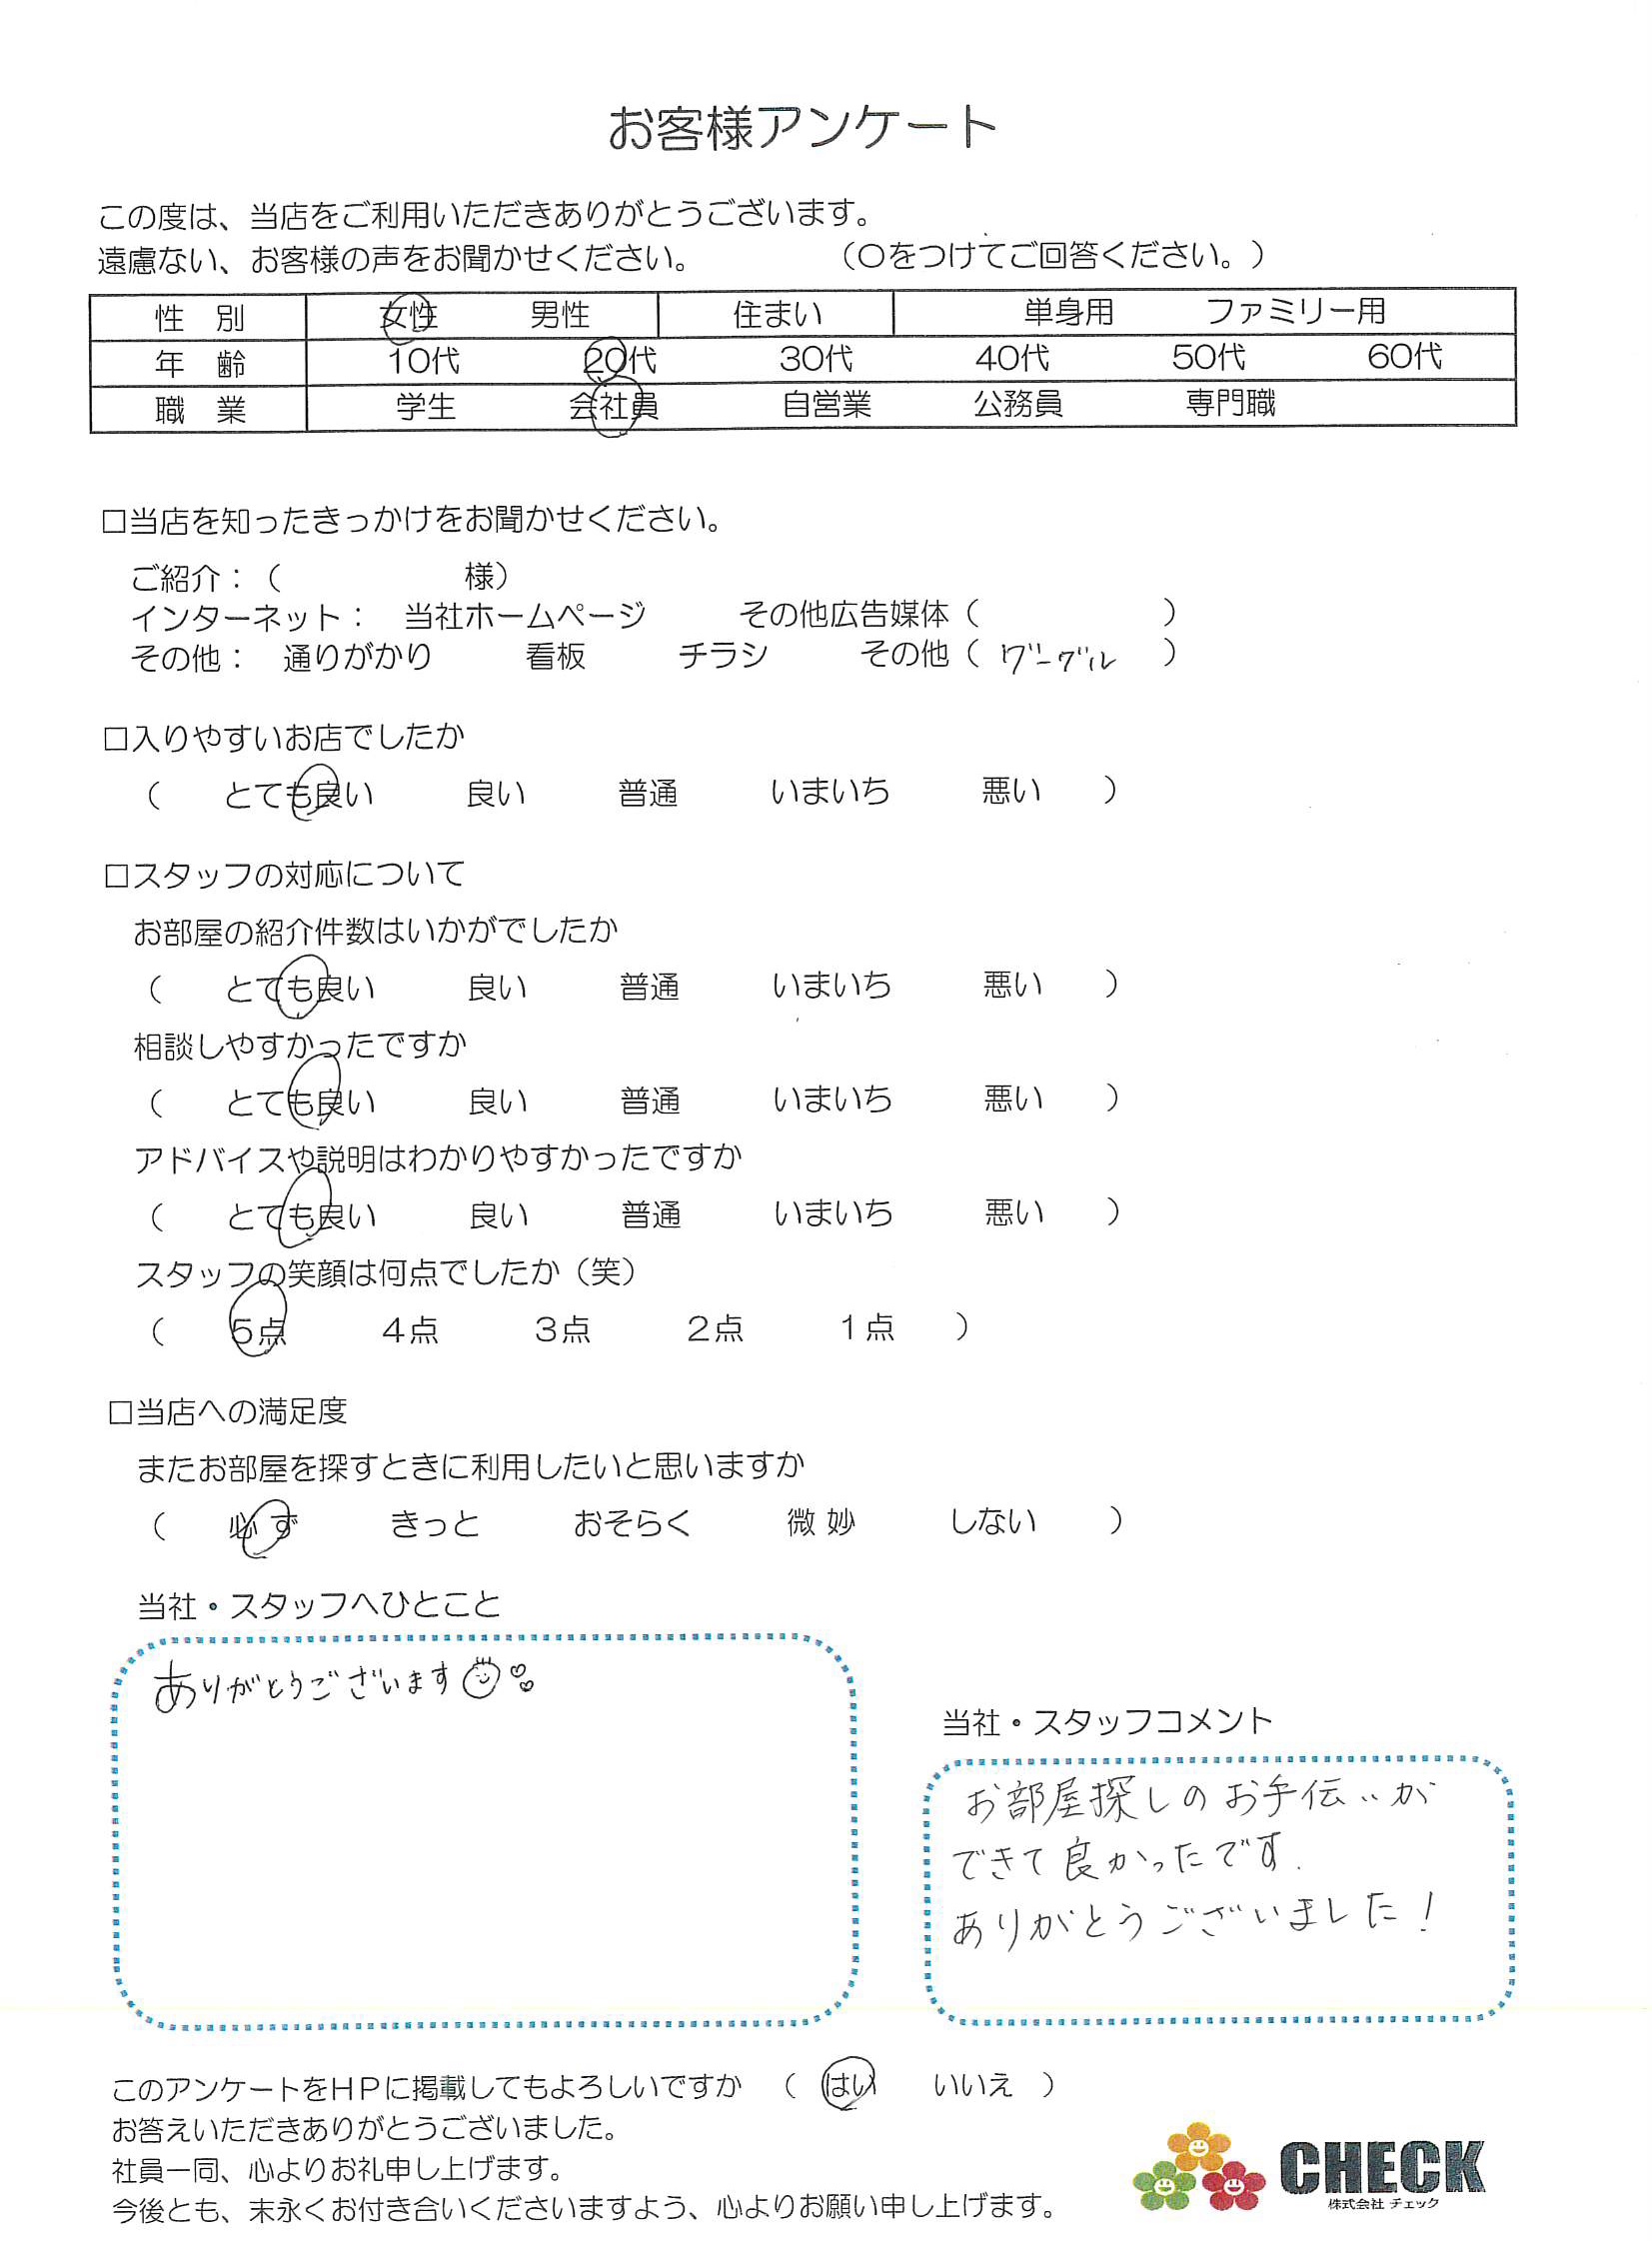 お客様アンケート
この度は、当店をご利用いただきありがとうございます。
遠慮ない、お客様の声をお聞かせください。 （○をつけてご回答ください。）
性 別 女性 男性 住まい 単身用 ファミリー用
年 齢 10代 20代 30代 40代 50代 60代
職 業 学生 会社員 自営業 公務員 専門職
□当店を知ったきっかけをお聞かせください。
ご紹介：（ 様）
インターネット： 当社ホームページ その他広告媒体（ ）
その他： 通りがかり 看板 チラシ その他（ グーグル ）
□入りやすいお店でしたか
（ とても良い 良い 普通 いまいち 悪い ）
□スタッフの対応について
お部屋の紹介件数はいかがでしたか
（ とても良い 良い 普通 いまいち 悪い ）
相談しやすかったですか
（ とても良い 良い 普通 いまいち 悪い ）
アドバイスや説明はわかりやすかったですか
（ とても良い 良い 普通 いまいち 悪い ）
スタッフの笑顔は何点でしたか（笑）
（ 5点 4点 3点 2点 1点 ）
□当店への満足度
またお部屋を探すときに利用したいと思いますか
（ 必ず きっと おそらく 微妙 しない ）
当社・スタッフへひとこと
ありがとうございます
当社・スタッフコメント
お部屋探しのお手伝いが
できて良かったです.
ありがとうございました！
このアンケートをＨＰに掲載してもよろしいですか （ はい いいえ ）
お答えいただきありがとうございました。
社員一同、心よりお礼申し上げます。
今後とも、末永くお付き合いくださいますよう、心よりお願い申し上げます。
CHECK
株式会社 チェック